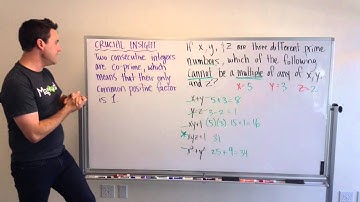 CRUCIAL INSIGHT
Two consecutive integers
are co-prime, which
means that their only
common positive factor
is 1.
If x, y, & z are three different prime
numbers, which of the following
cannot be a multiple of any of x, y,
and z?
x=5 y=3 z=2
x+y 5+3=8
y-z 3-2=1
xy+1 (5)(3) 15+1=16
xyz+1 31
x²+y² 25+9=34